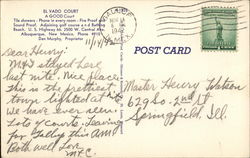 EL VADO COURT
A GOOD Court
Tile showers - Phone in every room - Fire Proof and
Sound Proof. Adjoining golf course and Bathing
Beach. U. S. Highway 66, 2500 W. Central Ave.
Albuquerque, New Mexico, Phone
Dan Murphy, Proprietor
11/17/42
POST CARD
Dear Henry:
M & I stayed here
last nite. Nice place
this is the prettiest
town lighted at
we have ever seen.
Lots of courts. Leaving
for Gallup this AM
Both well Love
M + C.
Master Henry Watson
629 So. 2nd St
Springfield, Ill.